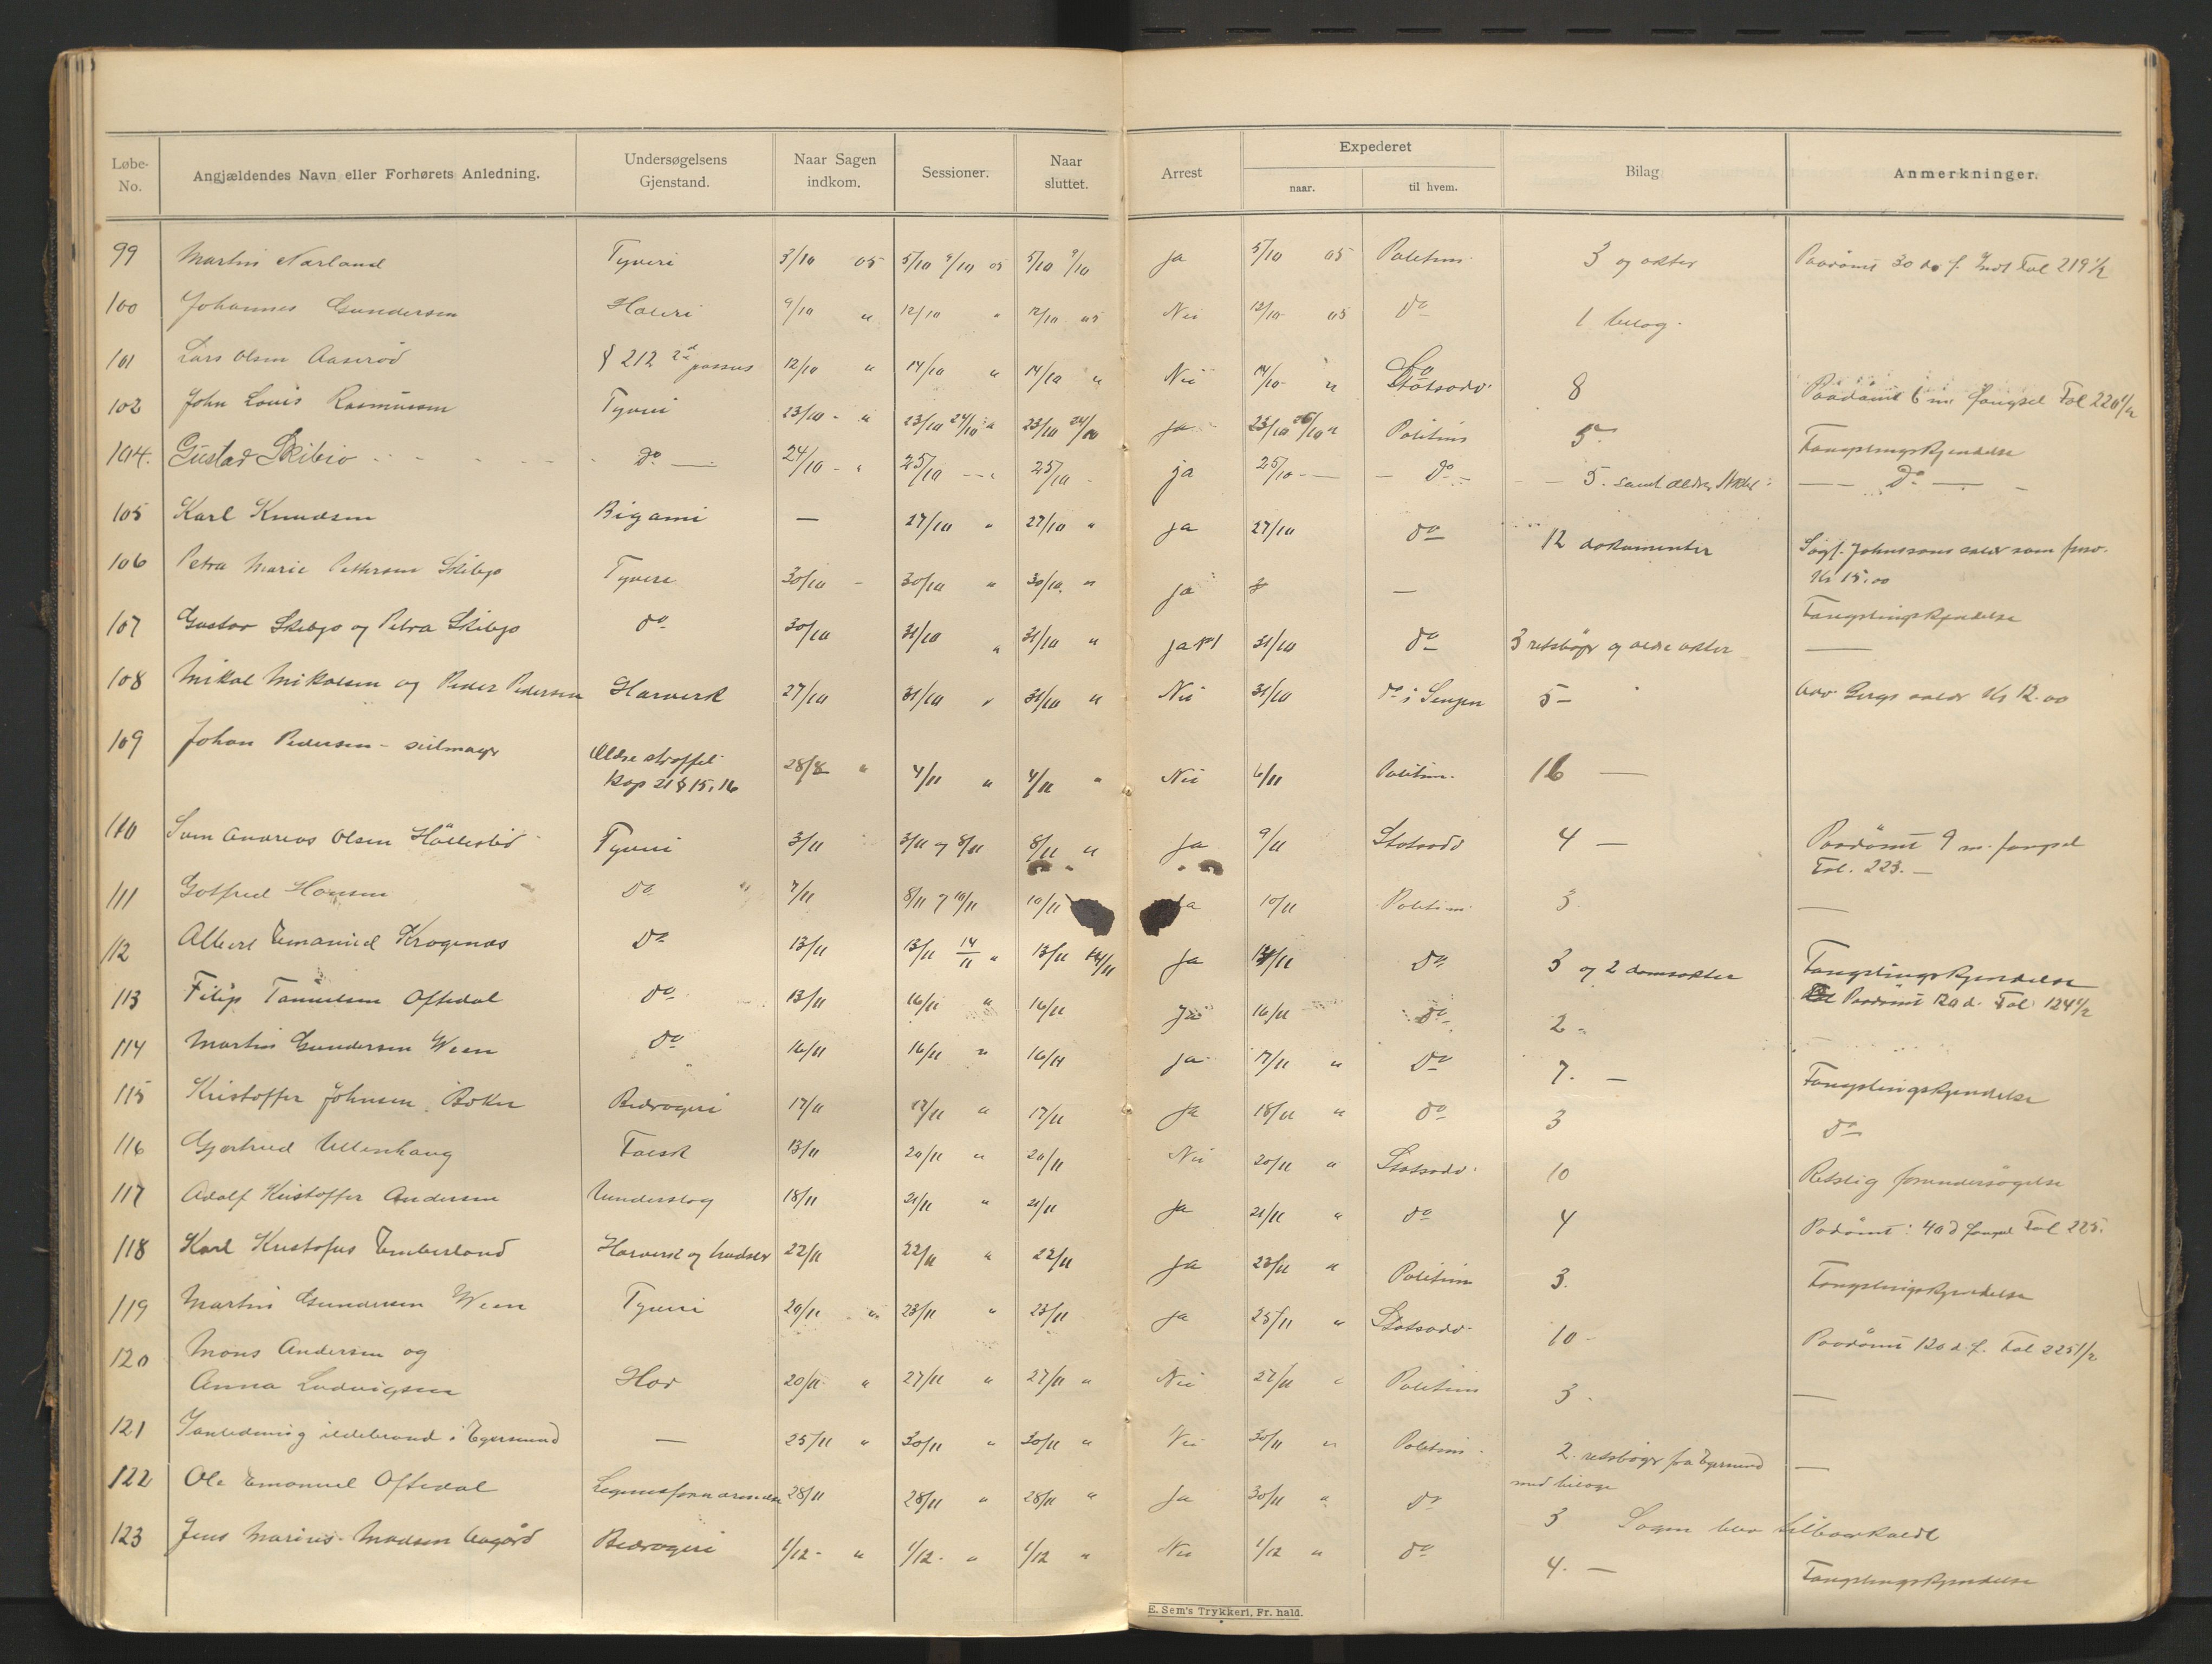 Løbe-No. Angjældendes Navn eller Forhørets Anledning. Undersøgelsens Gjenstand. Naar Sagen indkom. Sessioner. Naar sluttet. Arrest Expederet naar. til hvem. Bilag Anmerkninger.
99 Martin Narland Tyveri 3/10 05 5/10 9/10 05 5/10 9/10 Ja 5/10 05 Politim. 3 og akter Paadømt 30 d. f. Fol 219 1/2
100 Johannes Gundersen Haleri 9/10 " 12/10 " 12/10 05 Nei 12/10 05 Do 1 bilag.
101 Lars Olsen Aaserød § 212 2d passus 12/10 " 14/10 " 14/10 " Nei 14/10 " Statsadv. 8 Paadømt 6 m fængsel Fol 220 1/2
102 John Louis Rasmussen Tyveri 23/10 - " 23/10 24/10 " 23/10 24/10 Ja 23/10 26/10 " Politim 5. Fængslingskjendelse
104. Gustav Skibiø do — 24/10 - " 25/10 — " 25/10 - ja 25/10 — do - 5. samt ældre Akter — Do —
105 Karl Knudsen Bigami — 27/10 " 27/10 " ja 27/10 do 12 dokumenter Sagf. Johnssons salær som forsv.
Kr 15.00
106 Petra Marie Pettersen Skibø Tyveri 30/10 - 30/10 " 30/10. " Ja — Fængslingskjendelse
107 Gustav Skibø og Petra Skibø do 30/10 31/10 " 31/10 " ja 31/10 do 3 retsbøger og ældre akter —
108 Mikal Mikalsen og Peder Pedersen Hærverk 27/10 31/10 " 31/10 " Nei 31/10 do i Senjen 5 - Adv. Bergs salær Kr 12.00
109 Johan Pedersen - seilmager Ældre straffel.
kap 21 § 15, 16 28/8 " 4/11 " 4/11 " Nei 6/11 Politim. 16 —
110 Sven Andreas Olsen Hållestød Tyveri 3/11 3/11 og 8/11 8/11 " Ja 9/11 Statsadv 4 — Paadømt 9 m. fængsel
Fol. 223. —
111 Gotfred Hansen Do " 7/11 8/11 og 10/11 10/11 Ja 10/11 Politim. 3 —
112 Albert Emanuel Krogenæs Do 13/11 13/11 14/11 " 13/11 14/11 Ja 13/11 Do 3 og 2 domsakter Fængslingskjendelse
113 Filip Tønnesen Oftedal do 13/11 16/11 " 16/11 Ja 16/11 Do 2 " Paadømt 120 d. Fol 124 1/2
114 Martin Gundersen Ween do 16/11 16/11 " 16/11 ja 17/11 " Do 7. — Fængslingskjendelse
115 Kristoffer Johnsen Bøker Bedrageri 17/11 17/11 " 17/11 Ja 18/11 " do 3 do
116 Gjertrud Ullenhaug Falsk 13/11 20/11 " 20/11 Nei 20/11 " Statsadv. 10 Retslig forundersøgelse
117 Adolf Kristoffer Andersen Underslag 18/11 21/11 " 21/11 Ja 21/11 " do 4 Padømt: 40 d fængsel Fol 225.
118 Karl Kristofus Emberland Hærverk og trudsler 22/11 22/11 " 22/11 Ja 23/11 " Politim 3. Fængslingskjendelse
119 Martin Gundersen Ween Tyveri 20/11 " 23/11 " 23/11 Ja 25/11 " Statsadv. 10 - Paadømt 120 d. f. Fol 225 1/2
120 Mons Andersen og
Anna Ludvigsen Hor 20/11 " 27/11 " 27/11 " Nei 27/11 " Politim 3 - —
121 I anledning ildebrand i Egersund — 25/11 " 30/11 " 30/11 " Nei 30/11 " Politim. 2 retsbøger fra Egersund
med bilage —
122 Ole Emanuel Oftedal Legemsfornærmelse 28/11 28/11 " 28/11 " Ja 30/11 " do 3 Sagen blev tilbakekaldt
123 Jens Marius Madsen Aagård Bedrageri 1/12 - " 1/12 - " 1/12 " Nei 1/12 " do 4. — Fængslingskjendelse
E. Sem's Trykkeri, Fr. hald.